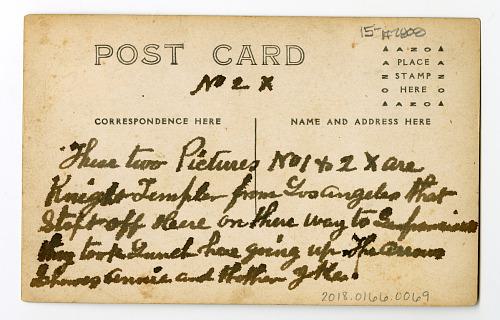 15-A2808
POST CARD
No 2 X
AZO
PLACE
STAMP
HERE
AZO
CORRESPONDENCE HERE
NAME AND ADDRESS HERE
These two Pictures No 1 & 2 X are
Knight Templer from Los Angeles that
Stopt off Here on there way to
they took Lunch here going up The arrow
Shows Annie and Mother
2018.0166.0069